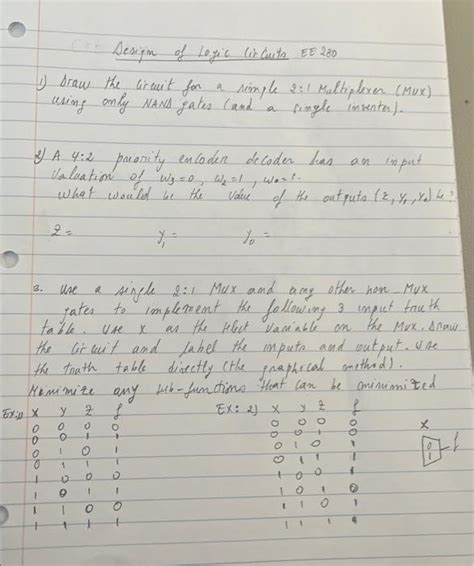 Design of Logic Circuits EE 230
1) Draw the circuit for a simple 2:1 Multiplexer (Mux)
using only NAND gates (and a single inverter).
2) A 4:2 priority encoder decoder has an input
valuation of w3=0, w2=1, w0=1.
what would be the value of the outputs (z, y1, y0) be?
z= y1= y0=
3. use a single 2:1 Mux and any other non-Mux
gates to implement the following 3 input truth
table. use x as the select variable on the Mux. Draw
the circuit and label the inputs and output. use
the truth table directly (the graphical method).
Minimize any sub-functions that can be minimized
Ex:1) x y z f Ex: 2) x y z f
0 0 0 0 0 0 0 0 x
0 0 1 1 0 0 1 0 0 f
0 1 0 1 0 1 0 1 1
0 1 1 1 0 1 1 1
1 0 0 0 1 0 0 1
1 0 1 1 1 0 1 0
1 1 0 0 1 1 0 1
1 1 1 1 1 1 1 1